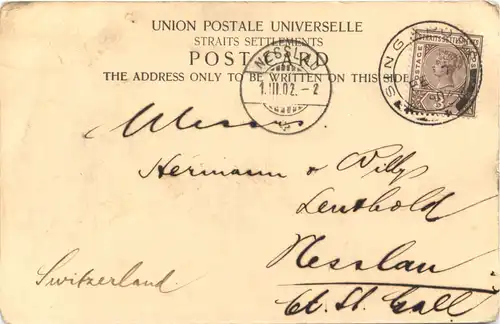 UNION POSTALE UNIVERSELLE
STRAITS SETTLEMENTS
POST CARD
THE ADDRESS ONLY TO BE WRITTEN ON THIS SIDE
NESSLAU
1.III.02.-2
STRAITS SETTLEMENTS
POSTAGE
3
SING
Messrs.
Hermann & Willy
Leuthold
Nesslau
Ct. St. Gall
Switzerland.